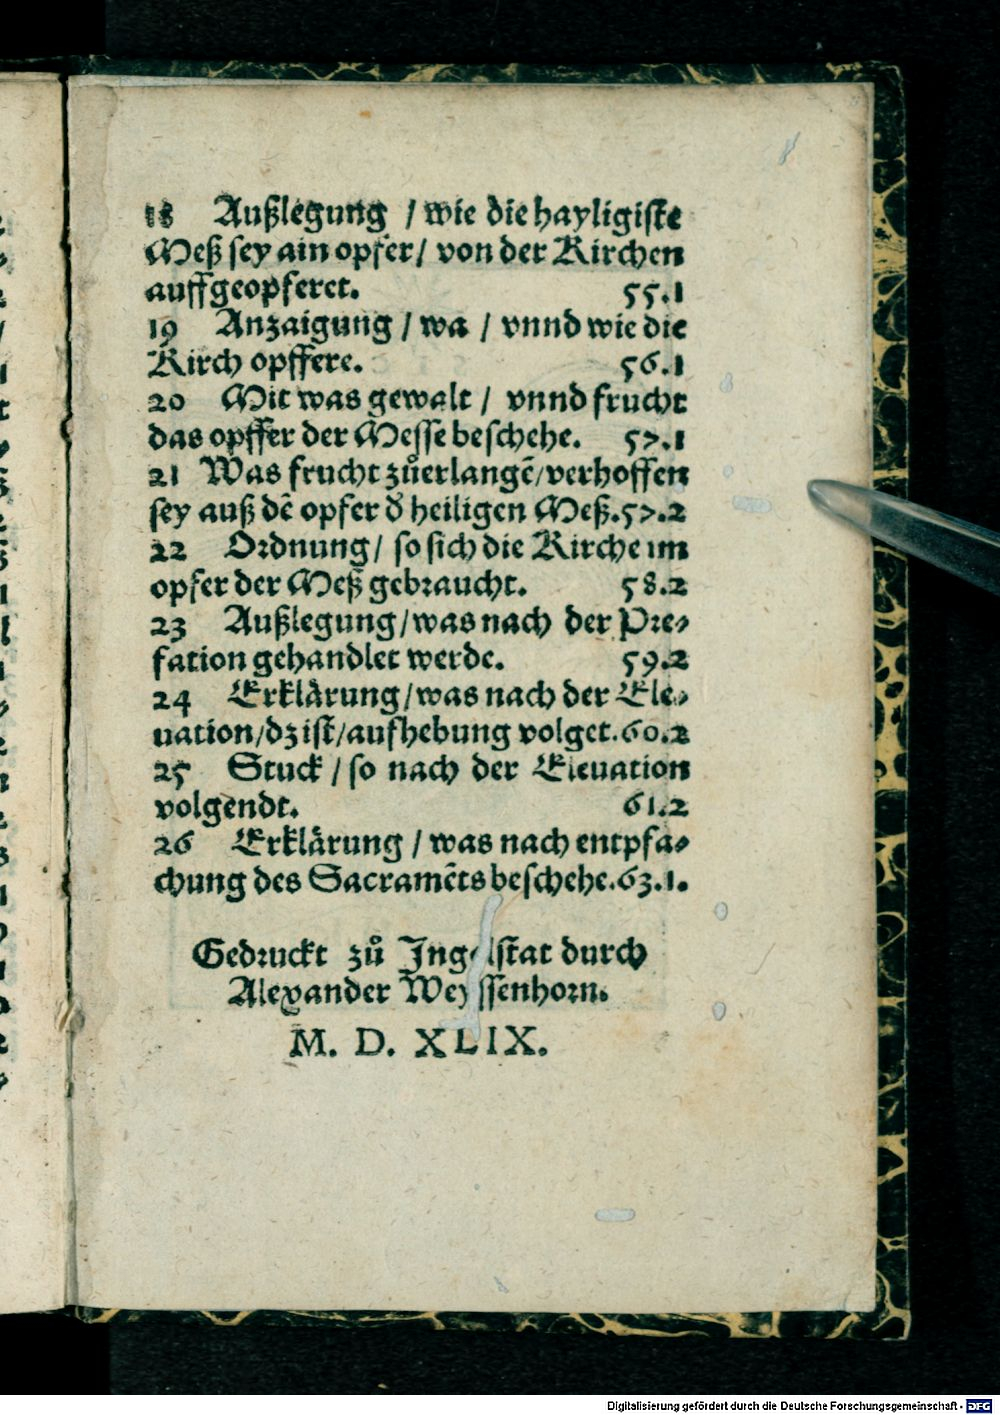 18 Außlegung / wie die hayligiste
Meß sey ain opfer / von der Kirchen
auffgeopferet. 55.1
19 Anzaigung / wa / vnnd wie die
Kirch opffere. 56.1
20 Mit was gewalt / vnnd frucht
das opffer der Messe beschehe. 57.1
21 Was frucht zůerlangẽ / verhoffen
sey auß dẽ opfer d̕ heiligen Meß. 57.2
22 Ordnung / so sich die Kirche im
opfer der Meß gebraucht. 58.2
23 Außlegung / was nach der Pre-
fation gehandlet werde. 59.2
24 Erklårung / was nach der Ele-
uation / dz ist / aufhebung volget. 60.2
25 Stuck / so nach der Eleuation
volgendt. 61.2
26 Erklårung / was nach entpfa-
chung des Sacramẽts beschehe. 63.1.
Gedruckt zů Ingolstat durch
Alexander Weyssenhorn.
M. D. XLIX.
Digitalisierung gefördert durch die Deutsche Forschungsgemeinschaft - DFG